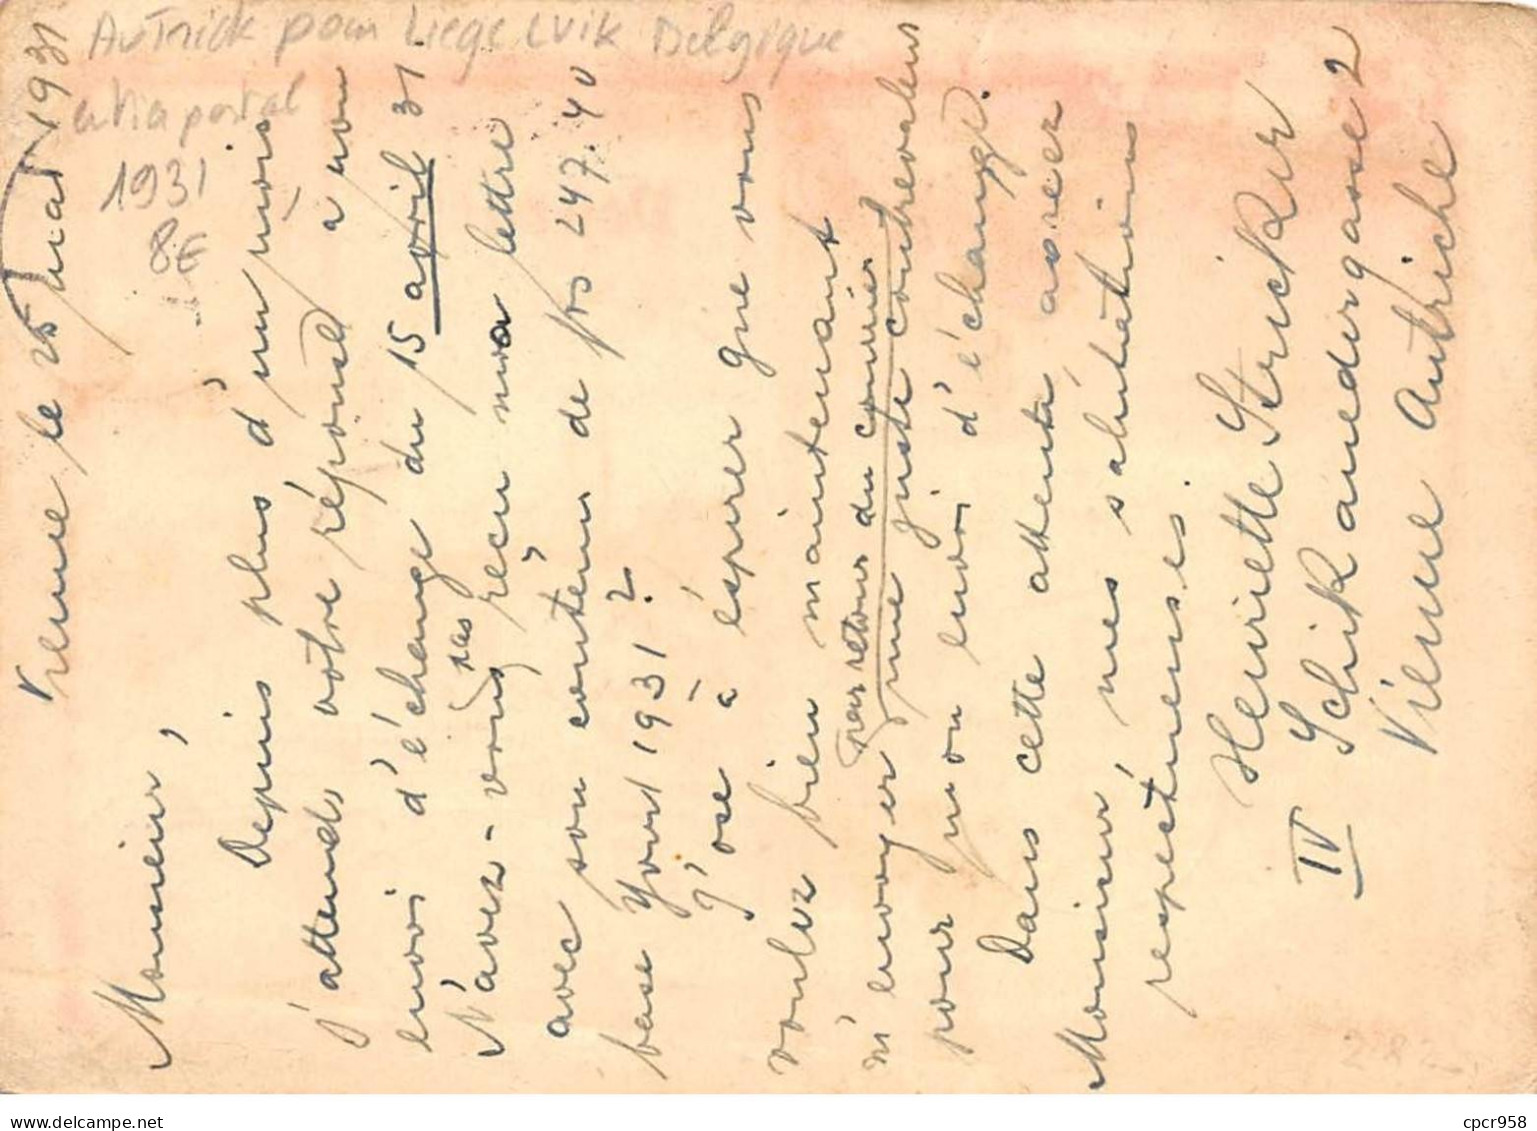 Autriche pour Liege Lvik Belgique
entier postal
1931
8€
Vienne le 25 mai 1931
Monsieur,
Depuis plus d'un mois
j'attends votre réponse à mon
envoi d'échange du 15 avril 31
N'avez-vous pas reçu ma lettre
avec son contenu de frs 247.40
base Yvert 1931?
J'ose à éspérer que vous
voulez bien maintenant
m'envoyer par retour du courrier
une juste contrevaleur
pour mon envoi d'échange.
Dans cette attente assez
Monsieur, mes salutations
respectueuses.
Henriette Stricker
IV Schikanedergasse 2
Vienne Autriche
cpcr958